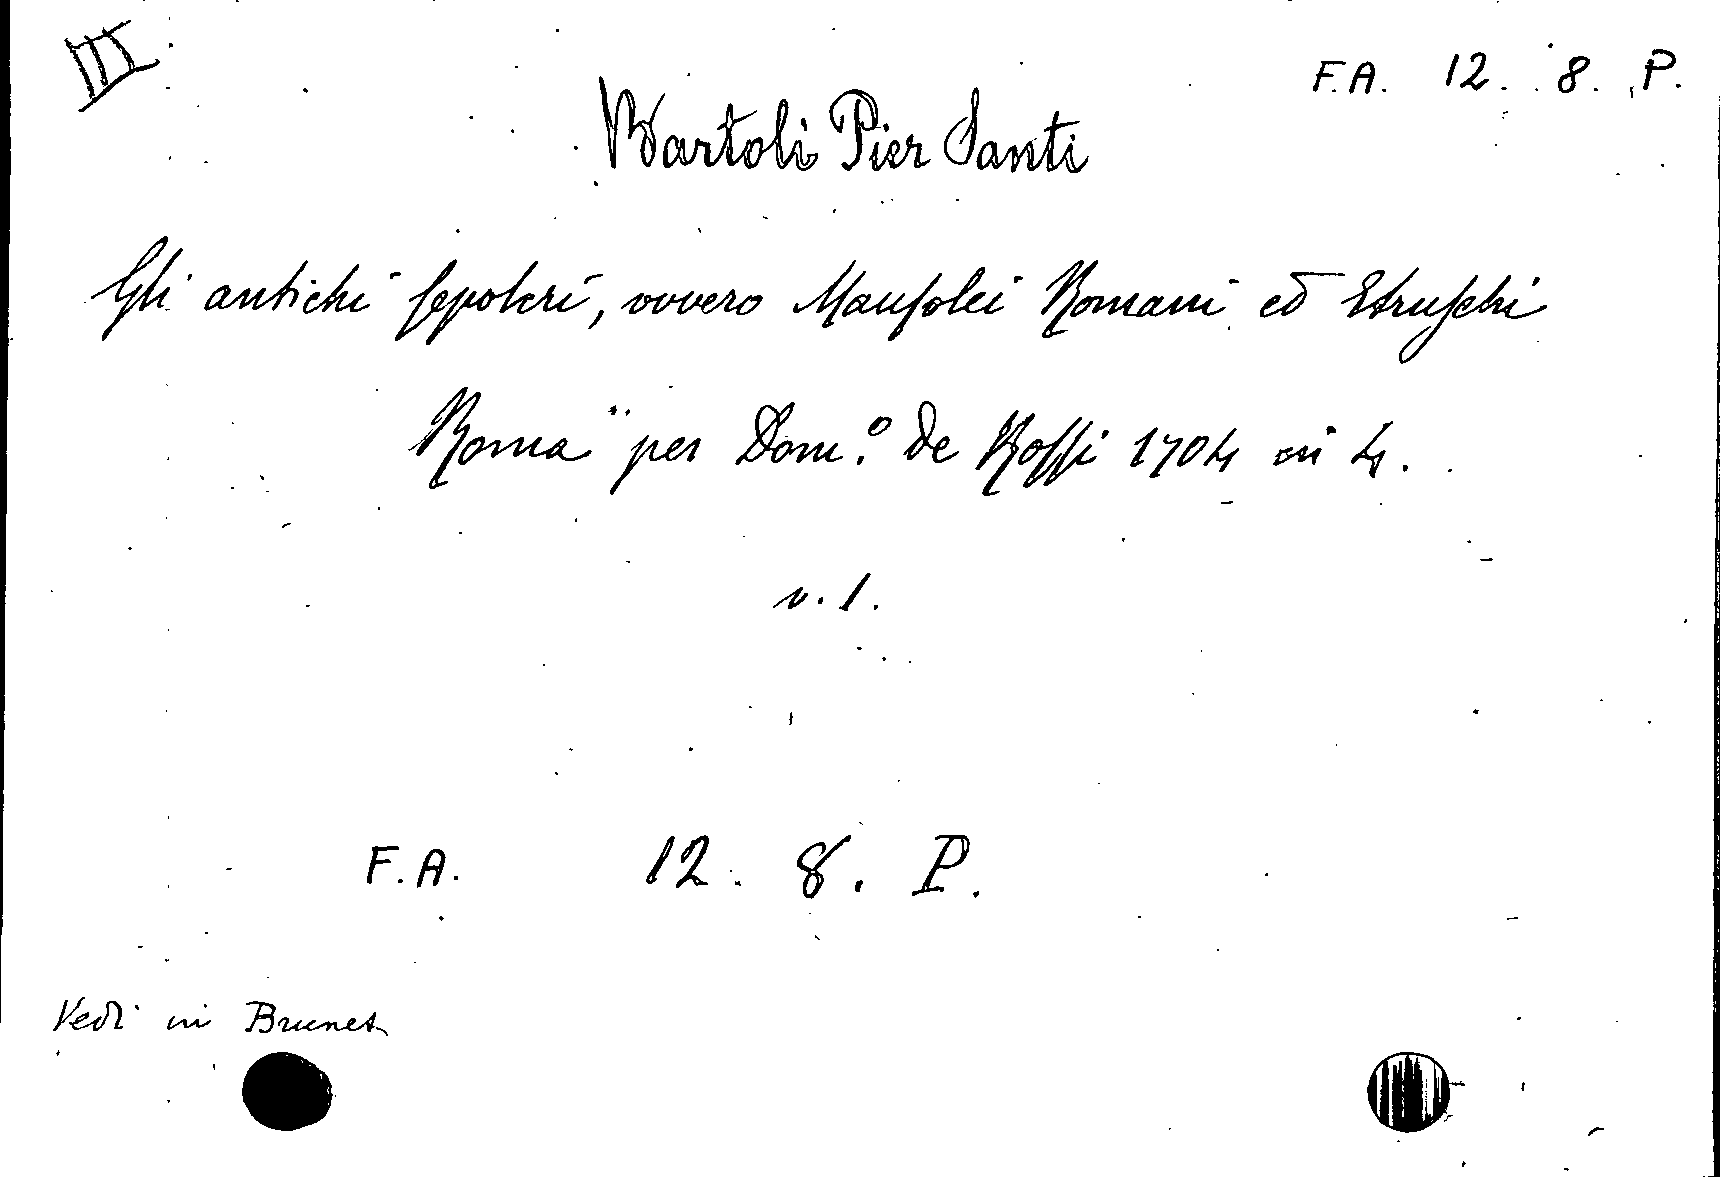 III
F.A. 12. 8. P.
Bartoli Pier Santi
Gli antichi ſepolcri, ovvero Mauſolei Romani ed Etruſchi
Roma per Dom.º de Roſſi 1704 in 4.
v. 1.
F.A. 12. 8. P.
Vedi in Brunet